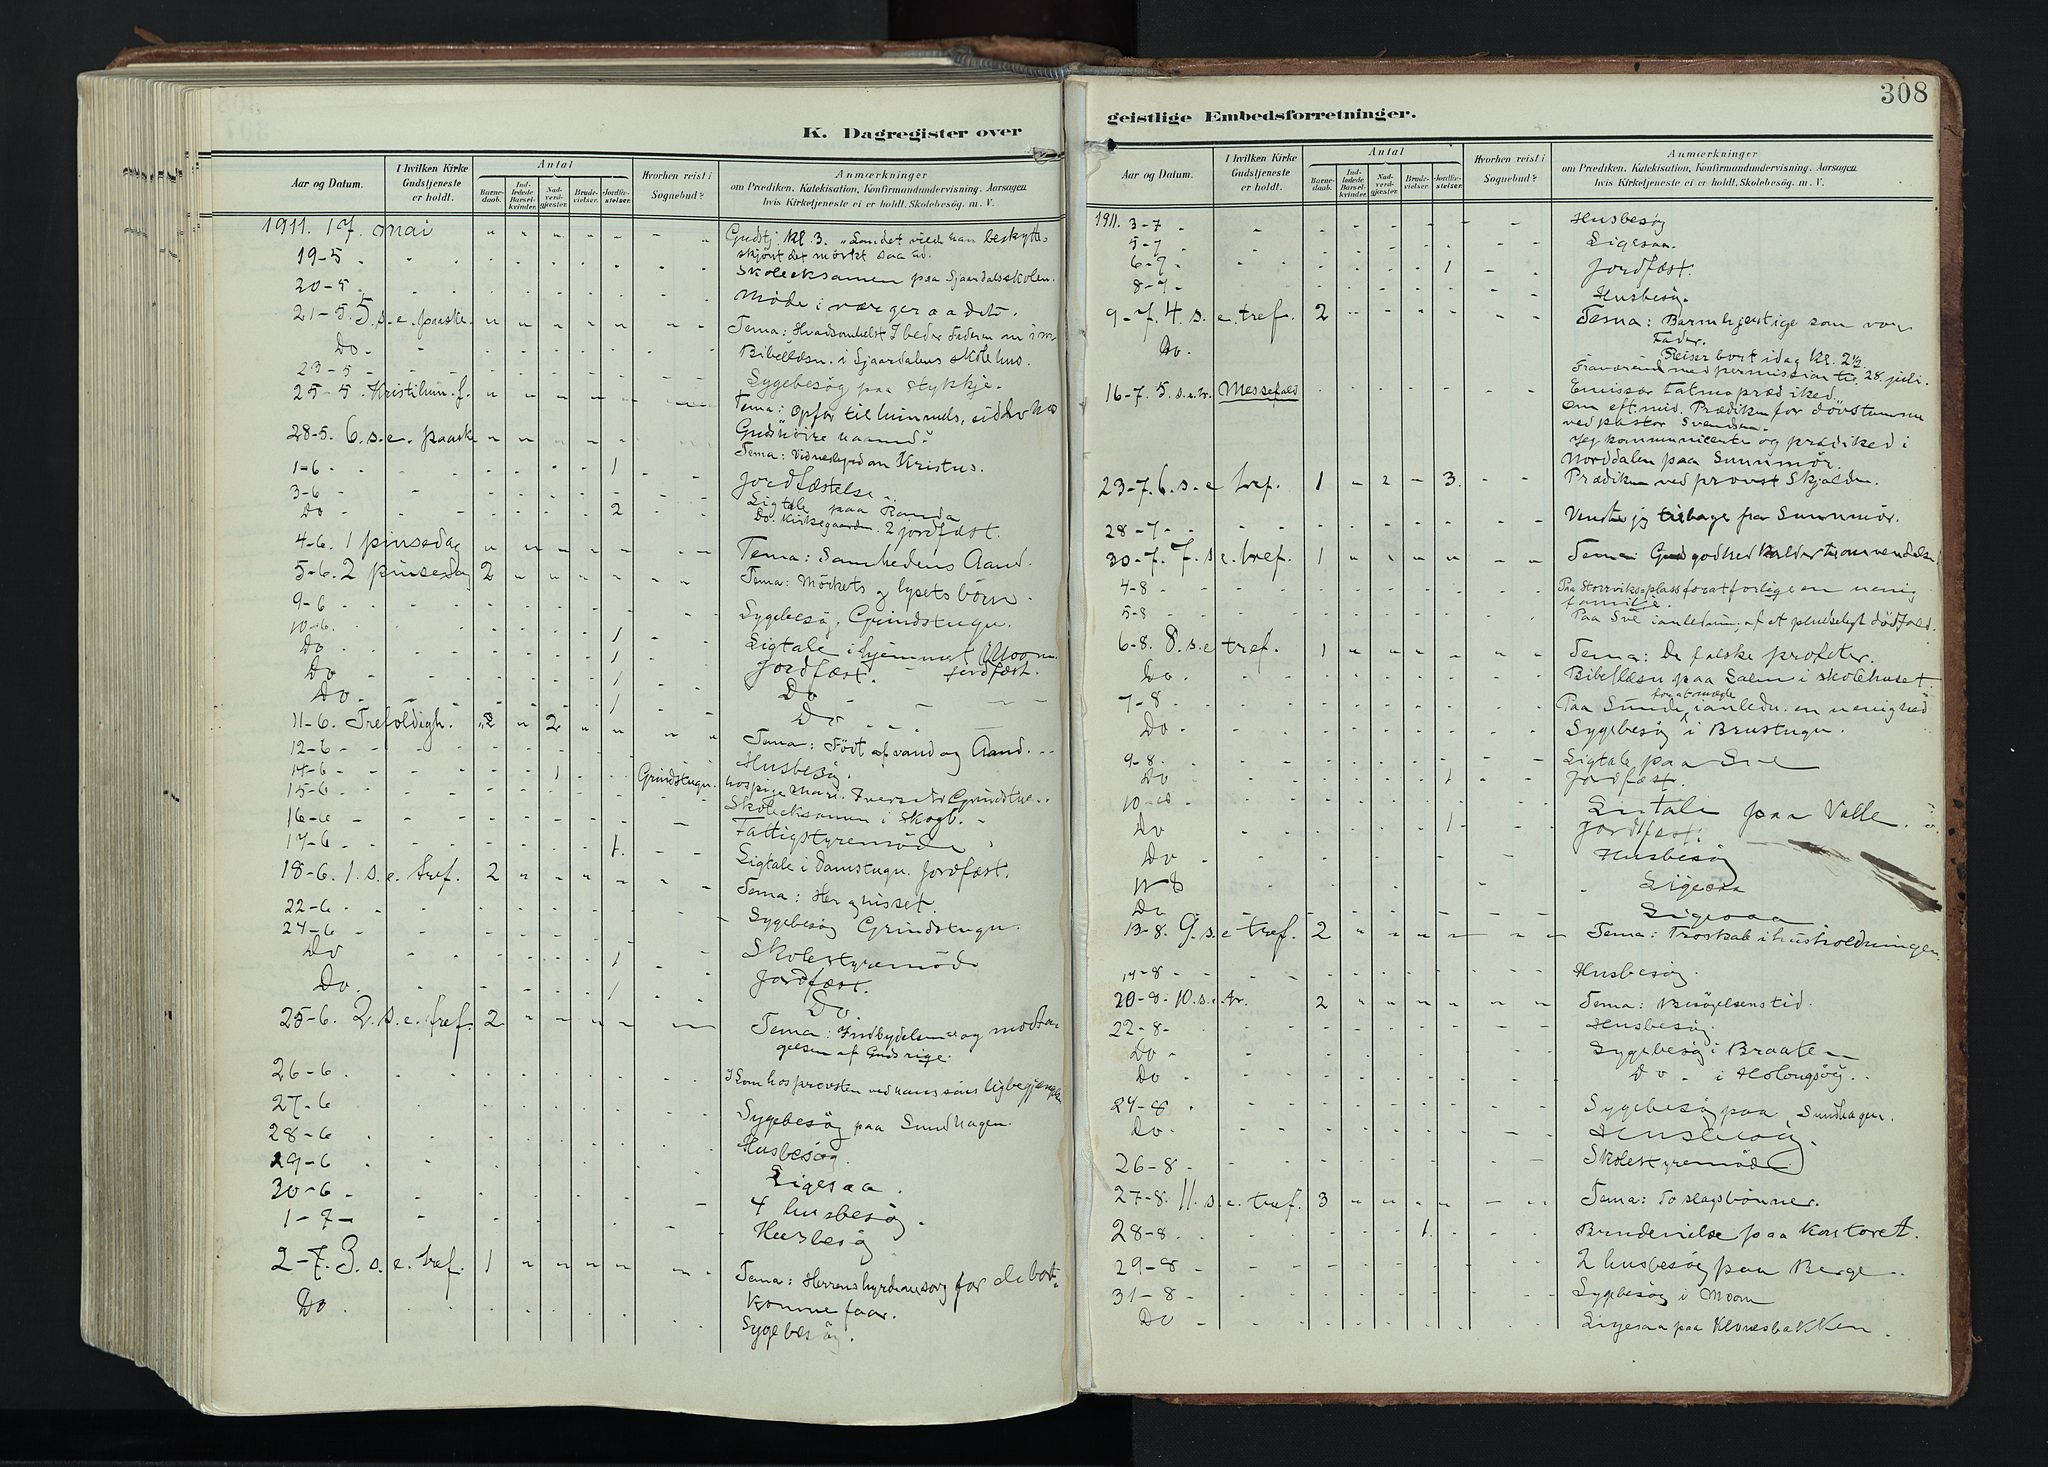 K. Dagregister over
Aar og Datum.
I hvilken Kirke Gudstjeneste er holdt.
Antal
Barnedaab.
Indledede Barselkvinder.
Nadverdgjæster.
Brudevielser.
Jordfæstelser.
Hvorhen reist i Sognebud?
Anmærkninger
om Prædiken, Katekisation, Konfirmandundervisning, Aarsagen
hvis Kirketjeneste ei er holdt, Skolebesøg m. V.
1911. 17. mai Gudstj. Kl. 3. "Landet vilde han beskytte
skjönt det mörkt saa ud.
19-5 Skoleeksamen paa
20-5 Möde i værgeraadet.
21-5. 5. s. e. paaske. Tema: Hvadsomhelst I beder Faderen om i m
Do. Bibellæsn. i skolehus.
23-5 Sygebesög paa
25-5 Kristi him. f. Tema: Opfor til himmels,
Guds höire haand.
28-5. 6. s. e. paaske Tema: Vidnesbyrd om Kristus.
1-6 1 Jordfæstelse
3-6 Ligtale paa
Do 2 Do. Kirkegaarden. 2 jordfæst.
4-6. 1 pinsedag Tema: Sandhedens Aand.
5-6. 2 pinsedag 2 Tema: Mörkets og lysets börn.
9-6 Sygebesög. Grindstugu.
10-6. 1 Ligtale i hjemmet Moom. jordfæst.
Do 1 Jordfæst.
Do 1 Do
Do 1 Do
11-6. Trefoldigh. 2 2 Tema: Født af vand og Aand.
12-6 Husbesög.
14-6 1 Grindstugu. hos
15-6 Skoleeksamen i Skogb.
16-6 Fattigstyremöde
17-6 1. Ligtale i Damstugu. Jordfæst.
18-6. 1. s. e. tref. 2 Tema: Her og hisset.
22-6 Sygebesög Grindstugu.
24-6 Skolestyremöde
Do 1 Jordfæst.
Do. 1 Do.
25-6. 2. s. e. tref. 2 Tema: Indbydelsen og modta-
gelsen af Guds rige.
26-6 hos provsten ved hans söns
27-6 Sygebesög paa Sundhagen.
28-6 Husbesög.
29-6 Ligesaa.
30-6 4 husbesög.
1-7 Husbesög
2-7. 3. s. e. tref. 1 Tema: Herrens hyrdeomsorg for de bort-
komne faar.
Do Sygebesög.
308
geistlige Embedsforretninger.
Aar og Datum.
I hvilken Kirke Gudstjeneste er holdt.
Antal
Barnedaab.
Indledede Barselkvinder.
Nadverdgjæster.
Brudevielser.
Jordfæstelser.
Hvorhen reist i Sognebud?
Anmærkninger
om Prædiken, Katekisation, Konfirmandundervisning, Aarsagen
hvis Kirketjeneste ei er holdt, Skolebesøg m. V.
1911. 3-7 Husbesög
5-7 Ligesaa.
6-7 1 Jordfæst.
8-7 Husbesög.
9-7. 4. s. e. tref. 2 Tema: Barmhjertige som vor
Fader.
Do. Reiser bort idag Kl. 2½
Fraværende med permission til 28. juli.
16-7. 5. s. e. tr. Messefald Emissær Tatmo prædiked.
Om eft. mid. Prædiken for dövstumme
ved pastor Svendsen.
Jeg kommunicerte og prædiked i
Norddalen paa Sunnmör.
23-7. 6. s. e tref. 1 2 3. Prædiken ved provst Skjolden.
28-7 Vendte jeg tilbage fra Sunnmör.
30-7. 7. s. e. tref. 1 Tema: Guds godhed kalder til omvendelse.
4-8 Paa Storvikplass for at forlige en uenig
familje.
5-8 Paa Sve i anledn. af et pludseligt dödfald.
6-8. 8. s. e tref. 1 Tema: De falske profeter.
Do. Bibellæsn paa Salen i skolehuset
7-8 Paa Sunde i anledn. en uenighed for at mægle
Do. Sygebesög i Brustugu.
9-8. Ligtale paa Sve
Do 1 Jordfæst.
10-8 Ligtale paa Valle.
Do 1 Jordfæst.
Do Husbesög
11-8 Ligesaa
Do Ligesaa
13-8. 9. s. e tref. 2 Tema: Troskab i husholdningen.
14-8 Husbesög.
20-8. 10. s. e. tr. 2 Tema: Besögelsens tid.
22-8 Husbesög.
Do Sygebesög i Braate
Do Do i
24-8 Sygebesög paa Sundhagen.
Do. Husbesög.
26-8 Skolestyremöde
27-8. 11. s. e. tref. 3 Tema: To slags bönner.
28-8. 1. Brudevielse paa Kontoret.
29-8 2 husbesög paa Berge.
31-8 Sygebesög i Moom
Do Ligesaa paa Klonesbakken.